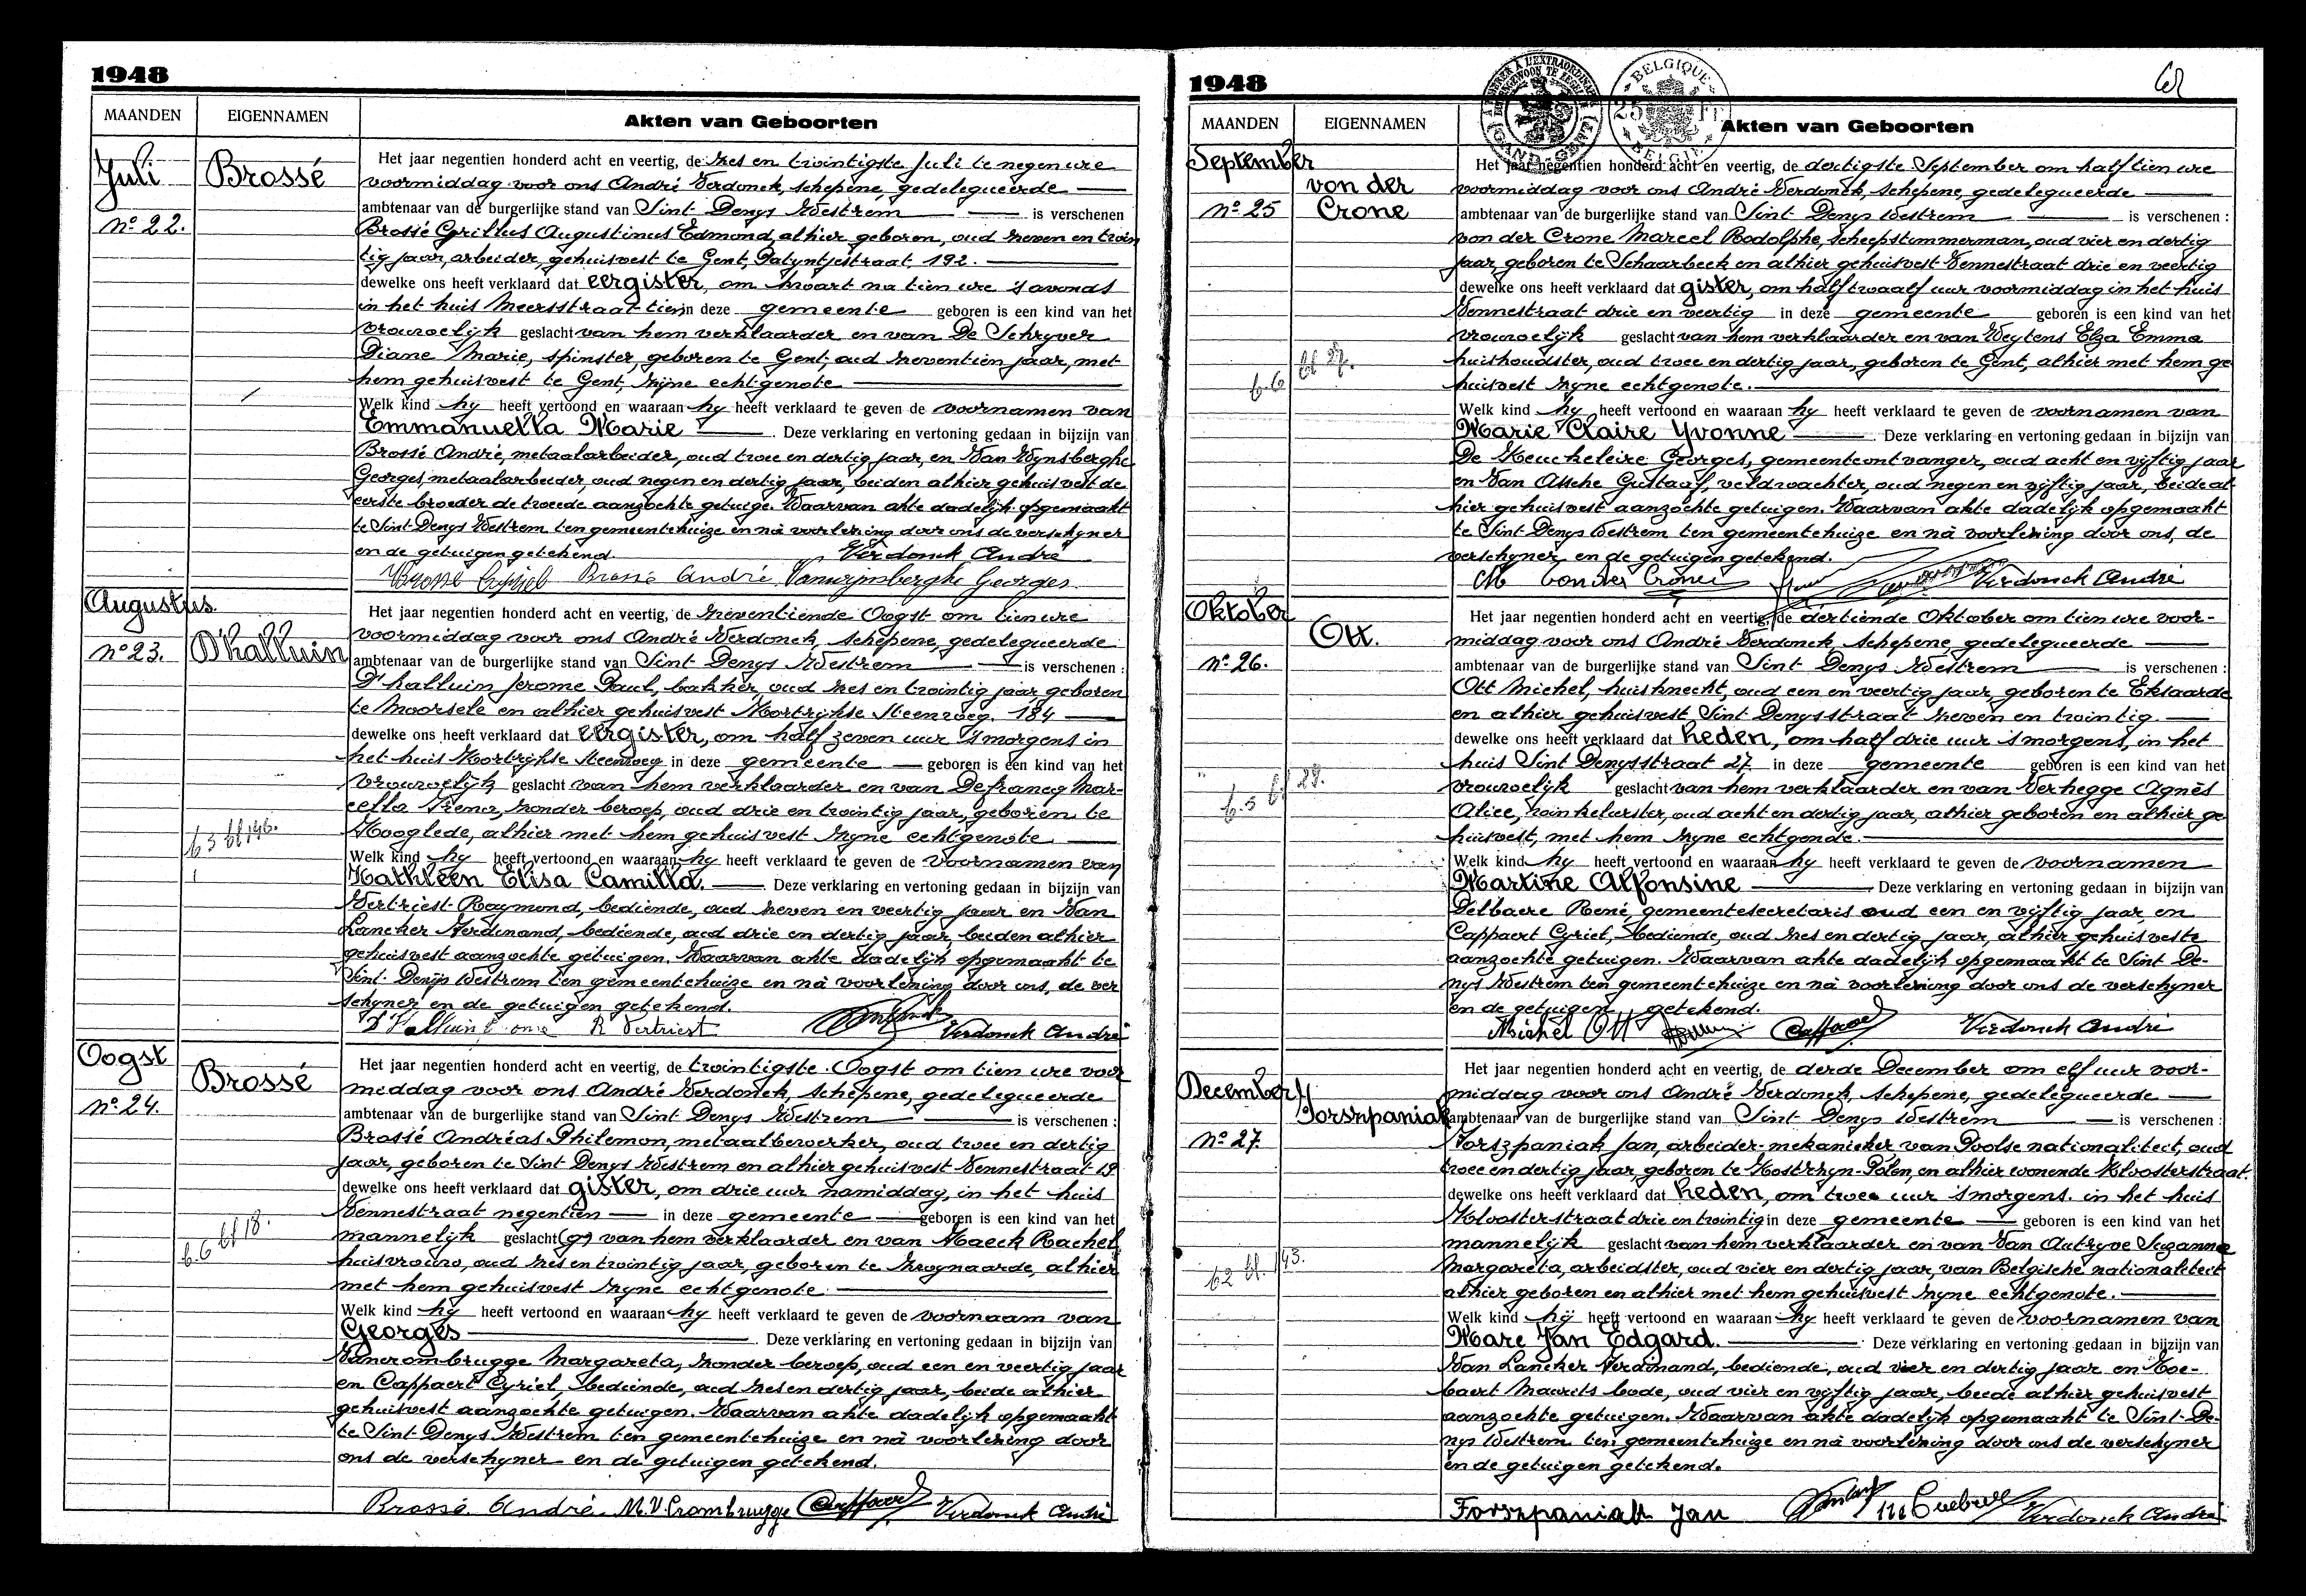 1948
MAANDEN EIGENNAMEN Akten van Geboorten
Juli Brossé
Nº 22.
Het jaar negentien honderd acht en veertig, de zes en twintigste Juli te negen ure
voormiddag voor ons André Verdonck, schepene, gedelegueerde
ambtenaar van de burgerlijke stand van Sint Denys Westrem is verschenen
Brossé Cyrillus Augustinus Edmond, alhier geboren, oud zeven en twin
tig jaar, arbeider, gehuisvest te Gent, Patyntjestraat, 192.
dewelke ons heeft verklaard dat eergister, om kwart na tien ure 's avonds
in het huis Meersstraat tien in deze gemeente geboren is een kind van het
vrouwelijk geslacht van hem verklaarder en van De Schryver
Diane Marie, spinster, geboren te Gent, oud zeventien jaar, met
hem gehuisvest te Gent, zijne echtgenote
Welk kind hy heeft vertoond en waaraan hy heeft verklaard te geven de voornamen van
Emmanuella Marie . Deze verklaring en vertoning gedaan in bijzijn van
Brossé André, metaalarbeider, oud twee en dertig jaar, en Van Wynsberghe
Georges, metaalarbeider, oud negen en dertig jaar, beiden alhier gehuisvest de
eerste broeder de tweede aanzochte getuige. Waarvan akte dadelijk opgemaakt
te Sint Denys Westrem ten gemeentehuize en nà voorlezing door ons de verschyner
en de getuigen getekend. Verdonck André
Brossé Cyriel Brossé André Vanwijnsberghe Georges
Augustus
Nº 23. D'halluin
Het jaar negentien honderd acht en veertig, de zeventiende Oogst om tien ure
voormiddag voor ons André Verdonck, schepene, gedelegueerde
ambtenaar van de burgerlijke stand van Sint Denys Westrem is verschenen :
D'halluin Jerome Paul, bakker, oud zes en twintig jaar, geboren
te Moorsele en alhier gehuisvest Kortrijkse Steenweg, 184
dewelke ons heeft verklaard dat eergister, om half zeven uur 's morgens in
het huis Kortrijkse Steenweg in deze gemeente geboren is een kind van het
vrouwelijk geslacht van hem verklaarder en van Defrancq Mar-
cella Irena, zonder beroep, oud drie en twintig jaar, geboren te
Hooglede, alhier met hem gehuisvest zyne echtgenote
b3 bl 146.
Welk kind hy heeft vertoond en waaraan hy heeft verklaard te geven de voornamen van
Kathleen Elisa Camilla. Deze verklaring en vertoning gedaan in bijzijn van
Vertriest Raymond, bediende, oud zeven en veertig jaar en Van
Lancker Ferdinand, bediende, oud drie en dertig jaar, beiden alhier
gehuisvest aanzochte getuigen. Waarvan akte dadelijk opgemaakt te
Sint Denijs Westrem ten gemeentehuize en nà voorlezing door ons, de ver
schyner en de getuigen getekend.
R Vertriest Verdonck André
Oogst Brossé
Nº 24.
Het jaar negentien honderd acht en veertig, de twintigste Oogst om tien ure voor
middag voor ons André Verdonck, schepene, gedelegueerde
ambtenaar van de burgerlijke stand van Sint Denys Westrem is verschenen :
Brossé Andréas Philemon, metaalbewerker, oud twee en dertig
jaar, geboren te Sint Denys Westrem en alhier gehuisvest Vennestraat 19
dewelke ons heeft verklaard dat gister, om drie uur namiddag, in het huis
Vennestraat negentien in deze gemeente geboren is een kind van het
mannelijk geslacht van hem verklaarder en van Maeck Rachel
huisvrouw, oud zes en twintig jaar, geboren te Zwynaarde, alhier
met hem gehuisvest zyne echtgenote
b.6 bl 18.
Welk kind hy heeft vertoond en waaraan hy heeft verklaard te geven de voornaam van
Georges . Deze verklaring en vertoning gedaan in bijzijn van
Vancrombrugge Margareta, zonder beroep, oud een en veertig jaar
en Cappaert Cyriel, bediende, oud zes en dertig jaar, beide alhier
gehuisvest aanzochte getuigen. Waarvan akte dadelijk opgemaakt
te Sint Denys Westrem ten gemeentehuize en nà voorlezing door
ons de verschyner en de getuigen getekend.
Brossé André M. V. Crombrugge Cappaert Verdonck André
1948
BELGIQUE 25 Fr BELGIE
MAANDEN EIGENNAMEN Akten van Geboorten
September von der
Nº 25 Crone
Het jaar negentien honderd acht en veertig, de dertigste September om half tien ure
voormiddag voor ons André Verdonck, schepene, gedelegueerde
ambtenaar van de burgerlijke stand van Sint Denys Westrem is verschenen :
von der Crone Marcel Rodolphe, scheepstimmerman, oud vier en dertig
jaar, geboren te Schaarbeek en alhier gehuisvest Vennestraat drie en veertig
dewelke ons heeft verklaard dat gister, om half twaalf uur voormiddag in het huis
Vennestraat drie en veertig in deze gemeente geboren is een kind van het
vrouwelijk geslacht van hem verklaarder en van Weytens Elza Emma
huishoudster, oud twee en dertig jaar, geboren te Gent, alhier met hem ge
huisvest zyne echtgenote.
Welk kind hy heeft vertoond en waaraan hy heeft verklaard te geven de voornamen van
Marie Claire Yvonne . Deze verklaring en vertoning gedaan in bijzijn van
De Keuckeleire Georges, gemeenteontvanger, oud acht en vijftig jaar
en Van Assche Gustaaf, veldwachter, oud negen en vijftig jaar, beide al
hier gehuisvest aanzochte getuigen. Waarvan akte dadelyk opgemaakt
te Sint Denys Westrem ten gemeentehuize en nà voorlezing door ons, de
verschyner en de getuigen getekend.
M von der Crone Verdonck André
Oktober Ott.
Nº 26.
Het jaar negentien honderd acht en veertig, de dertiende Oktober om tien ure voor-
middag voor ons André Verdonck, schepene, gedelegueerde
ambtenaar van de burgerlijke stand van Sint Denys Westrem is verschenen :
Ott Michel, huisknecht, oud een en veertig jaar, geboren te Eksaarde
en alhier gehuisvest Sint Denysstraat zeven en twintig.
dewelke ons heeft verklaard dat heden, om half drie uur 's morgens, in het
huis Sint Denysstraat 27 in deze gemeente geboren is een kind van het
vrouwelijk geslacht van hem verklaarder en van Verhegge Agnès
Alice, winkelierster, oud acht en dertig jaar, alhier geboren en alhier ge
huisvest, met hem zyne echtgenode.
Welk kind hy heeft vertoond en waaraan hy heeft verklaard te geven de voornamen
Martine Alfonsine . Deze verklaring en vertoning gedaan in bijzijn van
Delbaere René, gemeentesecretaris oud een en vijftig jaar, en
Cappaert Cyriel, bediende, oud zes en dertig jaar, alhier gehuisveste
aanzochte getuigen. Waarvan akte dadelijk opgemaakt te Sint De-
nys Westrem ten gemeentehuize en nà voorlezing door ons de verschyner
en de getuigen getekend.
Michel Ott Cappaert Verdonck André
December Forszpaniak
Nº 27.
Het jaar negentien honderd acht en veertig, de derde December om elf uur voor-
middag voor ons André Verdonck, schepene, gedelegueerde
ambtenaar van de burgerlijke stand van Sint Denys Westrem is verschenen :
Forszpaniak Jan, arbeider-mekanieker, van Poolse nationaliteit, oud
twee en dertig jaar, geboren te Kostrzyn-Polen, en alhier wonende Kloosterstraat.
dewelke ons heeft verklaard dat heden, om twee uur 's morgens, in het huis
Kloosterstraat drie en twintig in deze gemeente geboren is een kind van het
mannelijk geslacht van hem verklaarder en van Van Autryve Suzanna
Margareta, arbeidster, oud vier en dertig jaar, van Belgische nationaliteit
alhier geboren en alhier met hem gehuisvest zyne echtgenote.
b2 bl. 143.
Welk kind hij heeft vertoond en waaraan hy heeft verklaard te geven de voornamen van
Marc Jan Edgard. Deze verklaring en vertoning gedaan in bijzijn van
Van Lancker Ferdinand, bediende, oud vier en dertig jaar en Hoe-
baert Maurits bode, oud vier en vijftig jaar, beide alhier gehuisvest
aanzochte getuigen. Waarvan akte dadelijk opgemaakt te Sint De-
nys Westrem ten gemeentehuize en nà voorlezing door ons de verschyner
en de getuigen getekend.
Forszpaniak Jan Verdonck André